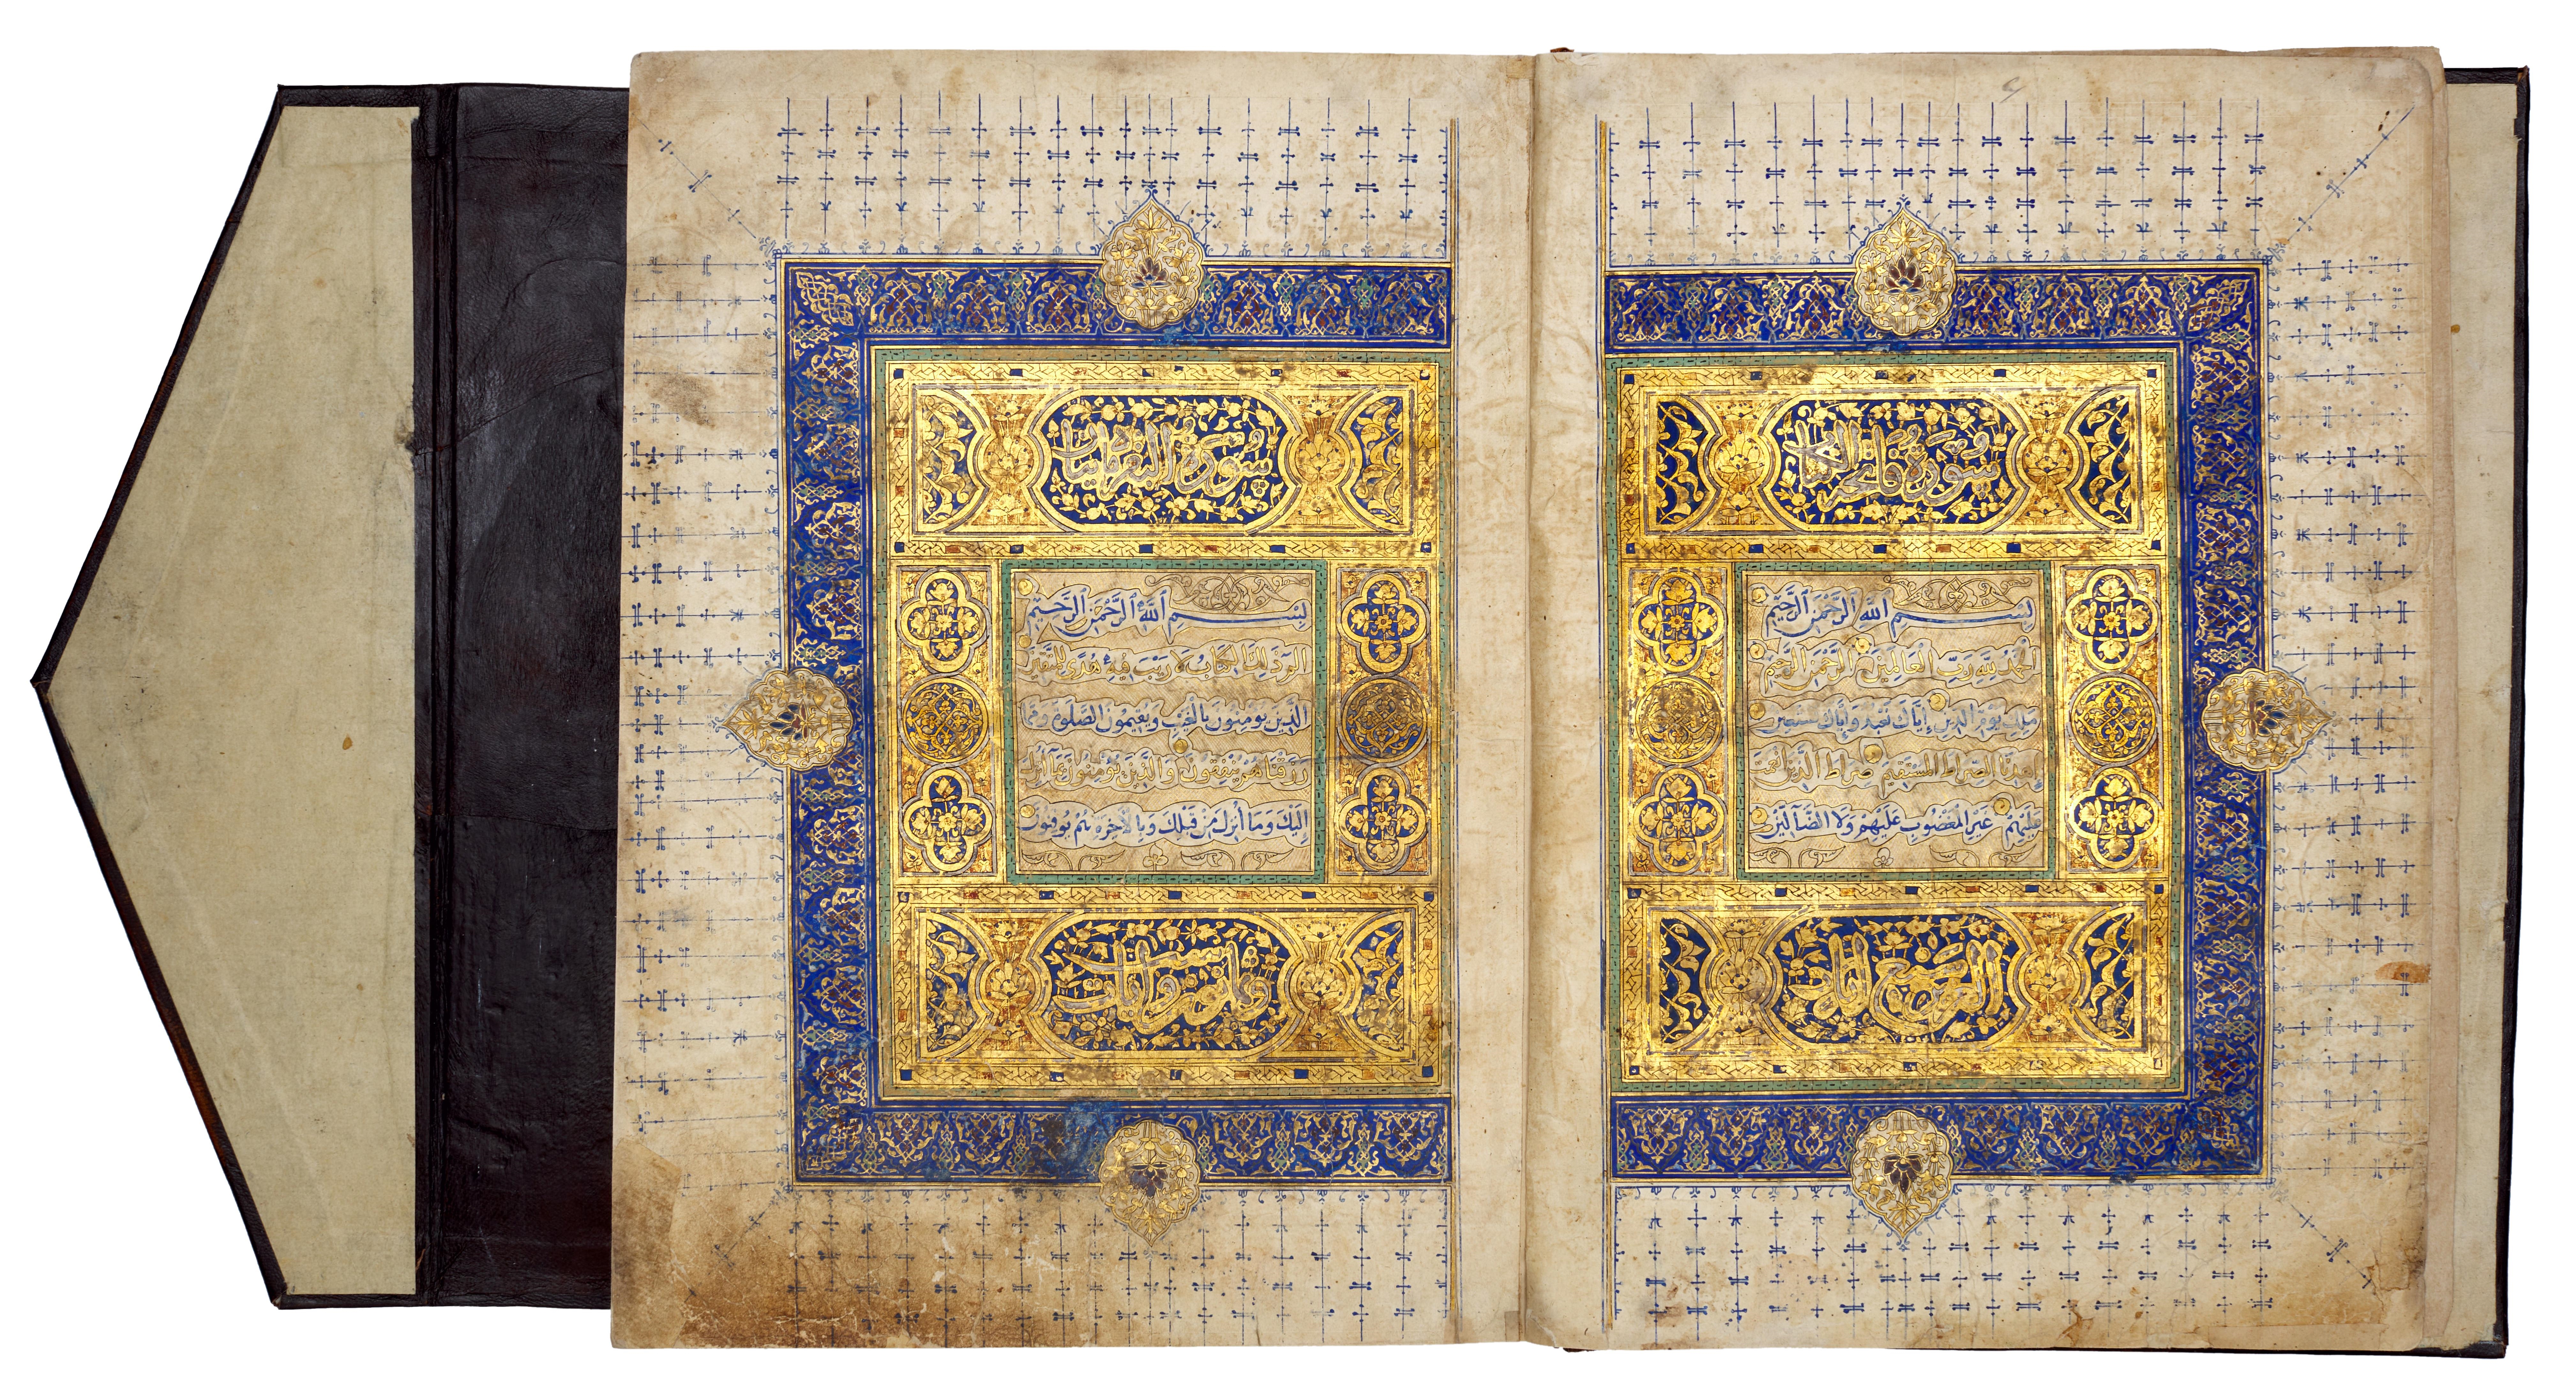 سُورَةُ فَاتِحَةِ الْكِتَابِ
بِسْمِ اللَّهِ الرَّحْمَنِ الرَّحِيمِ
الْحَمْدُ لِلَّهِ رَبِّ الْعَالَمِينَ الرَّحْمَنِ الرَّحِيمِ
مَلِكِ يَوْمِ الدِّينِ إِيَّاكَ نَعْبُدُ وَإِيَّاكَ نَسْتَعِينُ
اِهْدِنَا الصِّرَاطَ الْمُسْتَقِيمَ صِرَاطَ الَّذِينَ أَنْعَمْتَ
عَلَيْهِمْ غَيْرِ الْمَغْضُوبِ عَلَيْهِمْ وَلَا الضَّآلِّينَ
سُورَةُ الْبَقَرَةِ مِائَتَانِ
بِسْمِ اللَّهِ الرَّحْمَنِ الرَّحِيمِ
الم ذَلِكَ الْكِتَابُ لَا رَيْبَ فِيهِ هُدًى لِلْمُتَّقِينَ
الَّذِينَ يُؤْمِنُونَ بِالْغَيْبِ وَيُقِيمُونَ الصَّلَوةَ وَمِمَّا
رَزَقْنَاهُمْ يُنْفِقُونَ وَالَّذِينَ يُؤْمِنُونَ بِمَا أُنْزِلَ
إِلَيْكَ وَمَا أُنْزِلَ مِنْ قَبْلِكَ وَبِالْآخِرَةِ هُمْ يُوقِنُونَ